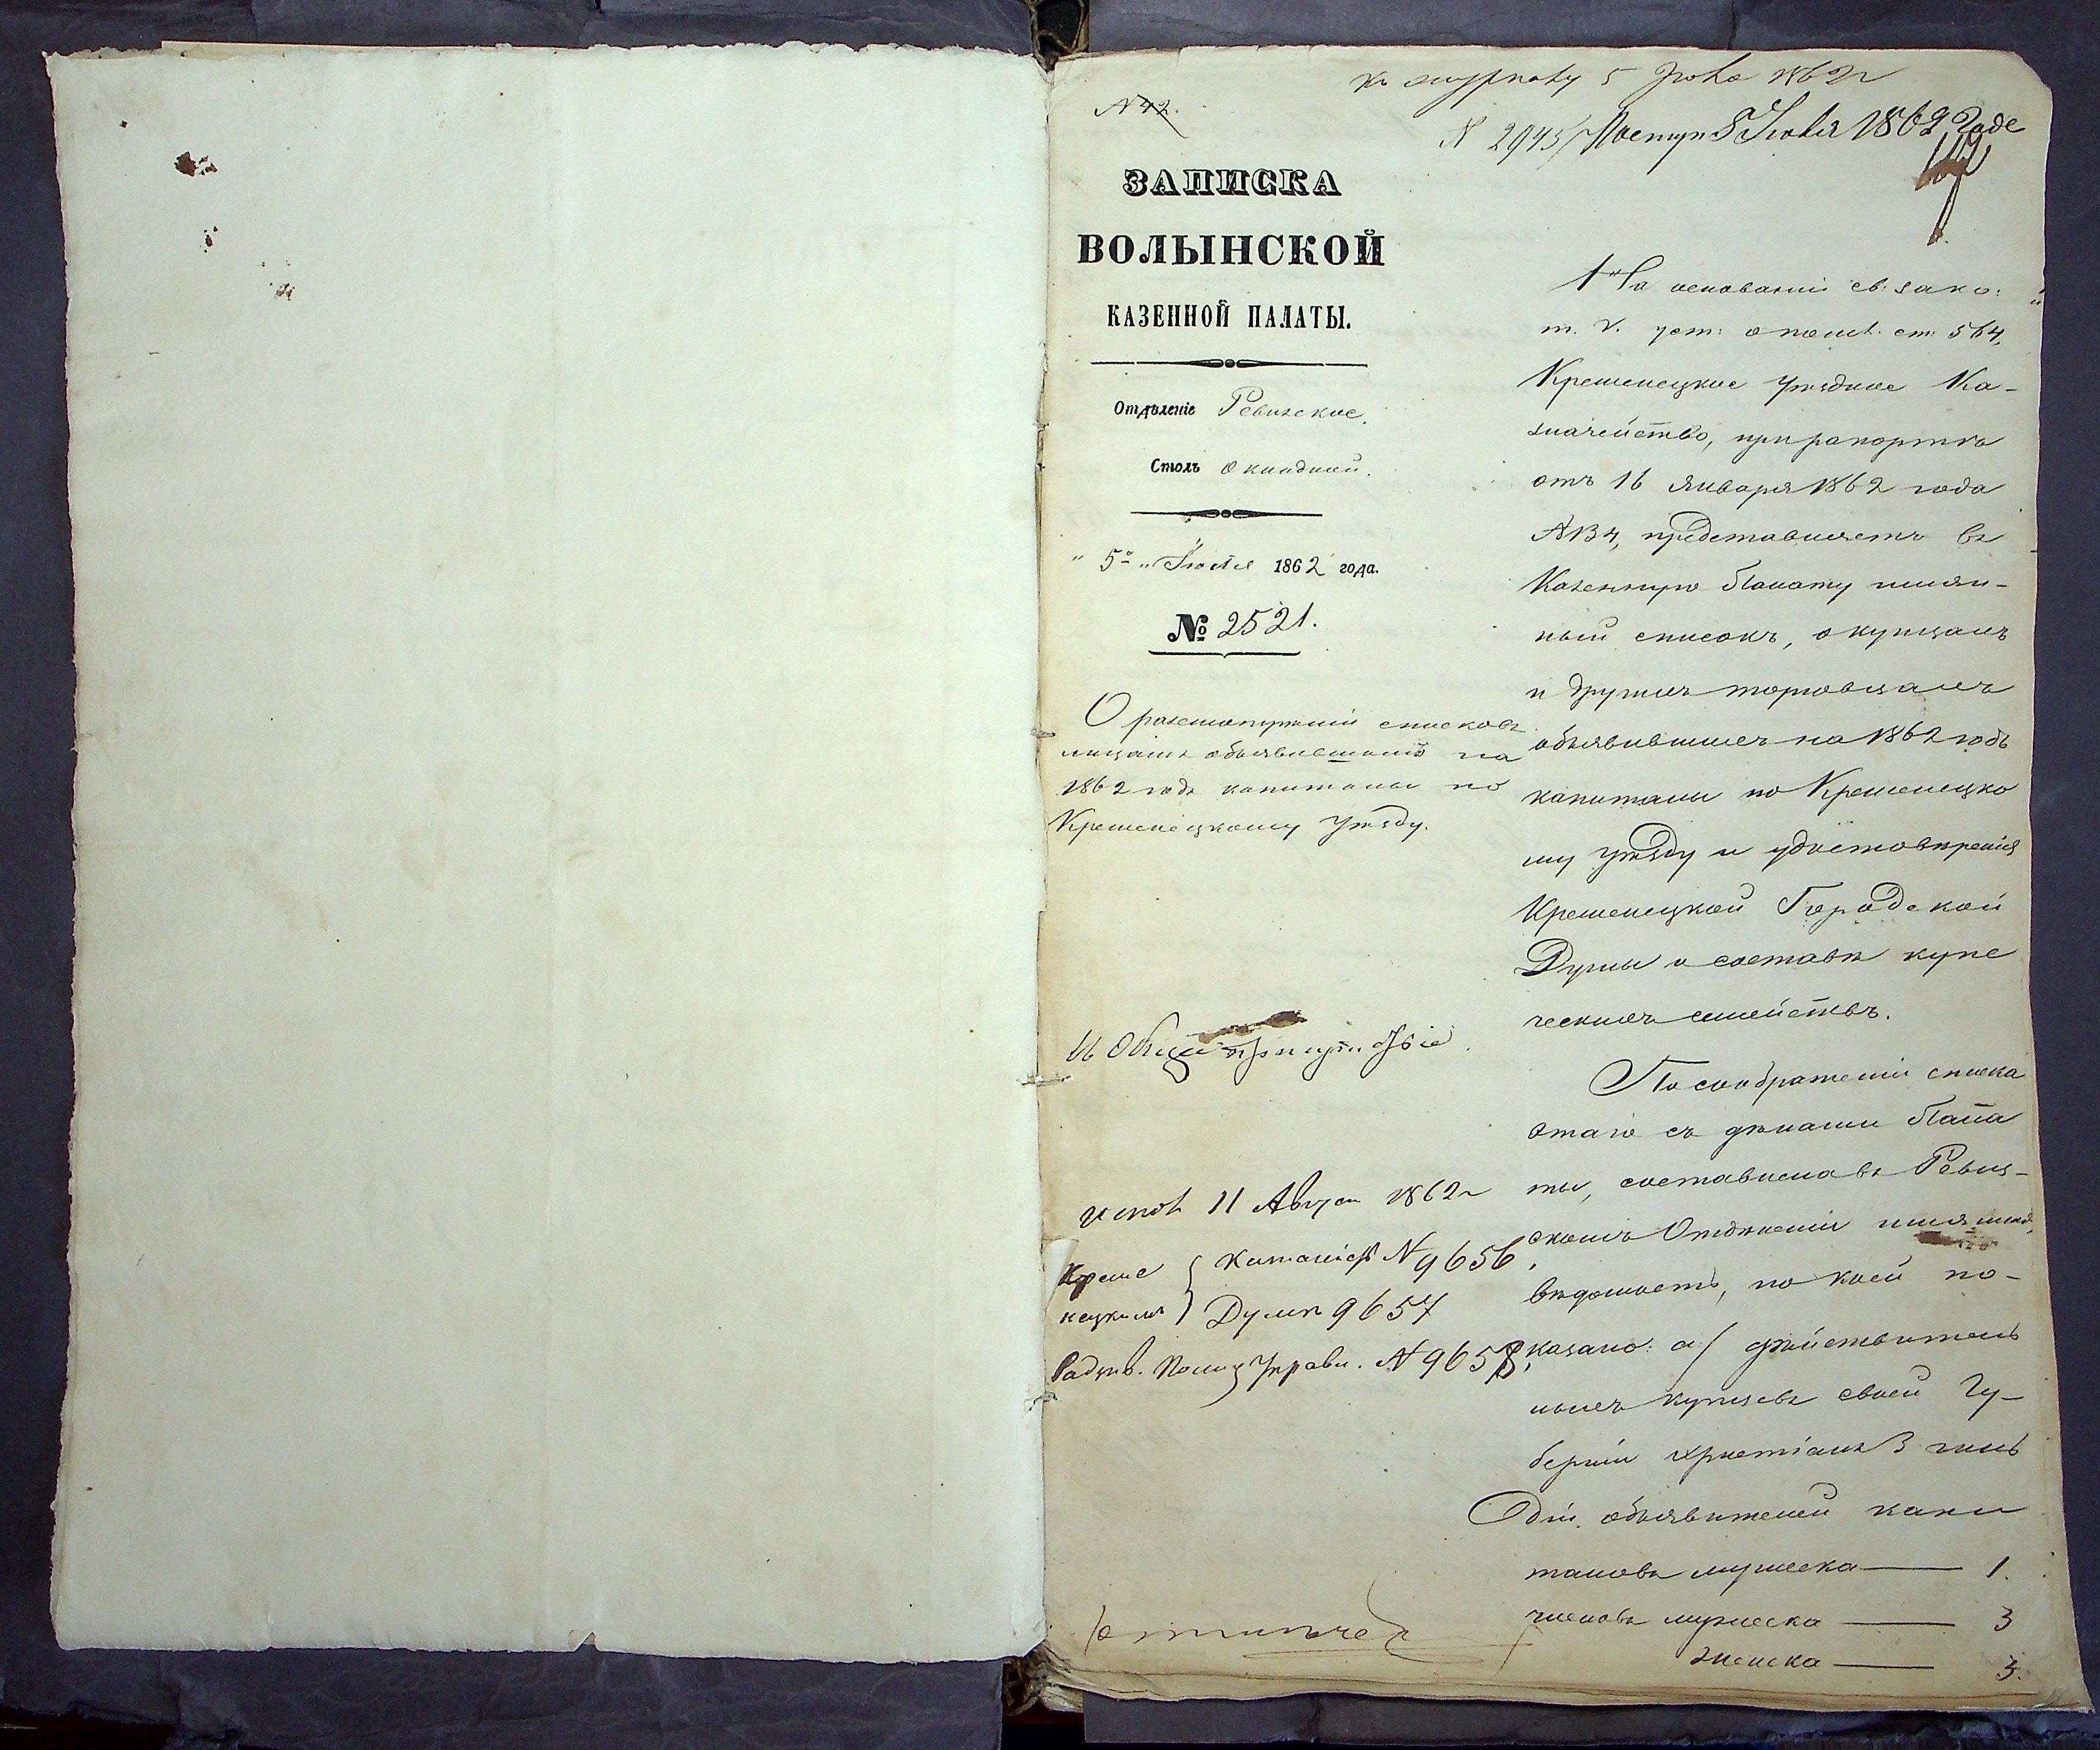 Къ журналу 5 Іюля 1862 г
№ 42.
№ 2945 / Поступ 5 Іюля 1862 Года
ЗАПИСКА
ВОЛЫНСКОЙ
КАЗЕННОЙ ПАЛАТЫ.
Отдѣленіе Ревизское.
Столъ Окладной.
" 5го " Іюля 1862 года.
№ 2521.
О разсмотрѣніи списковъ
лицамъ объявившимъ на
1862 годъ капиталы по
Кременецкому Уѣзду.
Въ Общее присутствіе
Испол 11 Август 1862 г
Креме Казначейст № 9656,
нецкимъ Думѣ 9657
Радзив. Полиц Управл. № 9658,
1. На основаніи св: зако:
т. V. уст: о пошл. ст. 564,
Кременецкое Уѣздное Ка-
значейство, при рапортѣ
отъ 16 Января 1862 года
№ 134, представляетъ въ
Казенную Палату имян-
ный списокъ, о купцахъ
и другихъ торговцахъ
объявившихъ на 1862 годъ
капиталы по Кременецко
му уѣзду и удостовѣренія
Кременецкой Городской
Думы о составѣ купе
ческихъ семействъ.
По соображеніи списка
этаго съ дѣлами Пала
ты, составлена въ Ревиз-
скомъ Отдѣленіи имянная
вѣдомость, по коей по-
казано: а/ дѣйствитель
ныхъ купцовъ своей Гу-
берніи христіанъ 3 гиль
діи. объявителей капи
таловъ мужеска — 1.
членовъ мужеска — 3
женска — 3.